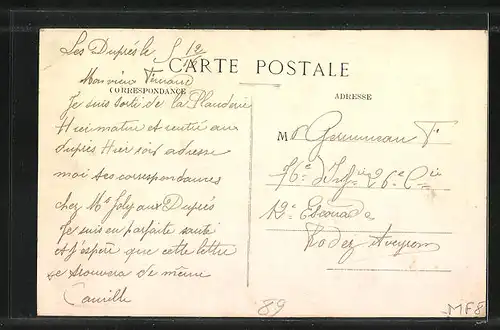 Les Duprés le 5/12
CARTE POSTALE
Mon vieux Fernand
CORRESPONDANCE
ADRESSE
Je suis sorti de la Planderie
Hier matin et rentré aux
Duprés Hier soir adresse
moi tes correspondances
chez Mr Joly aux Duprés
Je suis en parfaite santé
et j'espère que cette lettre
te trouvera de même
Camille
Mr Germineau F.
76e d'Inf 26e Cie
12e Escouade
Rodez Aveyron
89
MF8